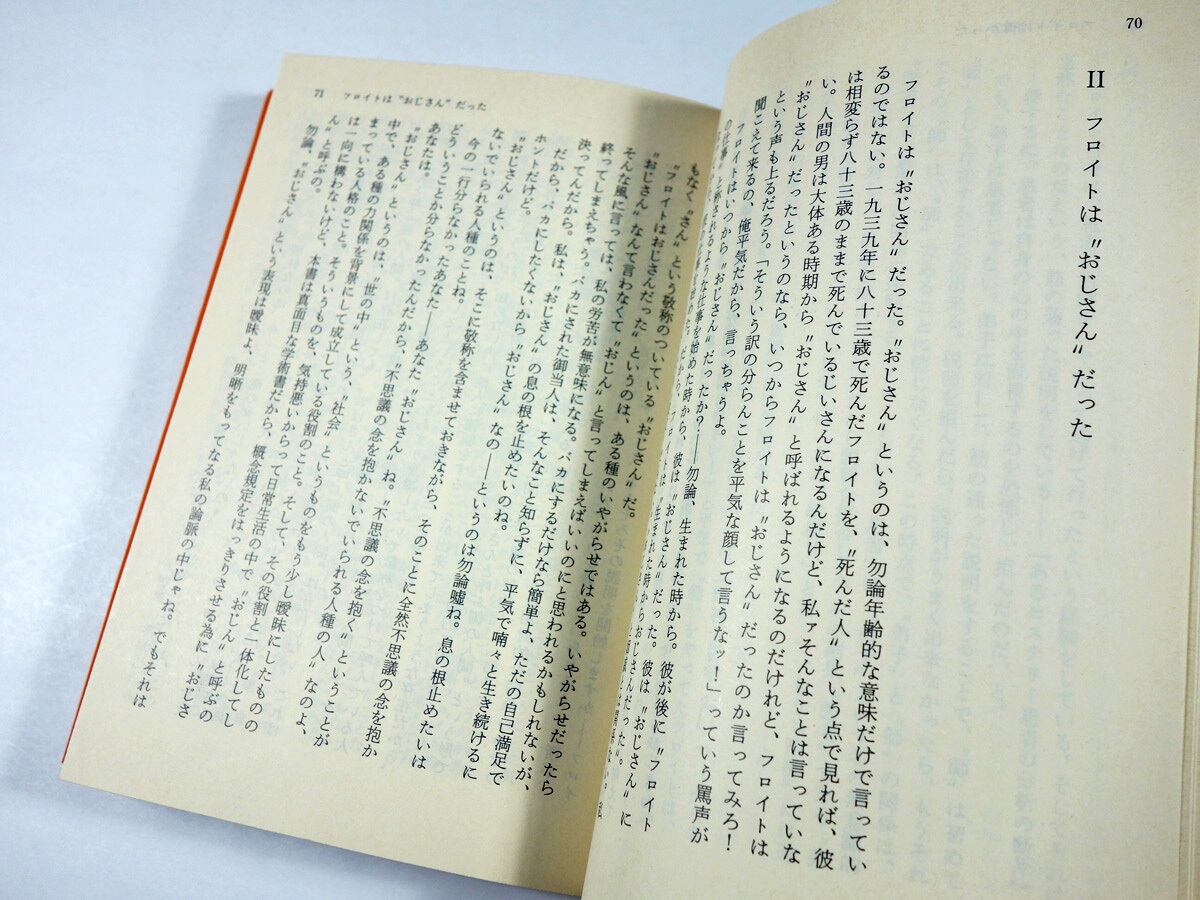 70
II フロイトは〝おじさん〟だった
フロイトは〝おじさん〟だった。〝おじさん〟というのは、勿論年齢的な意味だけで言ってい
るのではない。一九三九年に八十三歳で死んだフロイトを、〝死んだ人〟という点で見れば、彼
は相変らず八十三歳のままで死んでいるじいさんになるんだけど、私ァそんなことは言っていな
い。人間の男は大体ある時期から〝おじさん〟と呼ばれるようになるのだけれど、フロイトは
〝おじさん〟だったというのなら、いつからフロイトは〝おじさん〟だったのか言ってみろ！
という声も上るだろう。「そういう訳の分らんことを平気な顔して言うなッ！」っていう罵声が
聞こえて来るの、俺平気だから、言っちゃうよ。
フロイトはいつから〝おじさん〟だったか？――勿論、生まれた時から。彼が後に〝フロイト
の仕事〟と称されるような仕事を始めた時から、彼は〝おじさん〟だった。彼は〝おじさん〟に
71 フロイトは〝おじさん〟だった
もなく〝さん〟という敬称のついている〝おじさん〟だ。
〝フロイトはおじさんだった〟というのは、ある種のいやがらせではある。いやがらせだったら
〝おじさん〟なんて言わなくて〝おじん〟と言ってしまえばいいのにと思われるかもしれないが、
そんな風に言っては、私の労苦が無意味になる。バカにするだけなら簡単よ、ただの自己満足で
終ってしまえちゃう。バカにされた御当人は、そんなこと知らずに、平気で喃々と生き続けるに
決ってんだから。私は、〝おじさん〟の息の根を止めたいのね。
だから、バカにしたくないから〝おじさん〟なの――というのは勿論嘘ね。息の根止めたいは
ホントだけど。
〝おじさん〟というのは、そこに敬称を含ませておきながら、そのことに全然不思議の念を抱か
ないでいられる人種のことね。
今の一行分らなかったあなた――あなた〝おじさん〟ね。〝不思議の念を抱く〟ということが
どういうことか分らなかったんだから、〝不思議の念を抱かないでいられる人種の人〟なのよ、
あなたは。
〝おじさん〟というのは、〝世の中〟という、〝社会〟というものをもう少し曖昧にしたものの
中で、ある種の力関係を背景にして成立している役割のこと。そして、その役割と一体化してし
まっている人格のこと。そういうものを、気持悪いからって日常生活の中で〝おじん〟と呼ぶの
は一向に構わないけど、本書は真面目な学術書だから、概念規定をはっきりさせる為に〝おじさ
ん〟と呼ぶの。いい？
勿論、〝おじさん〟という表現は曖昧よ、明晰をもってなる私の論脈の中じゃね。でもそれは